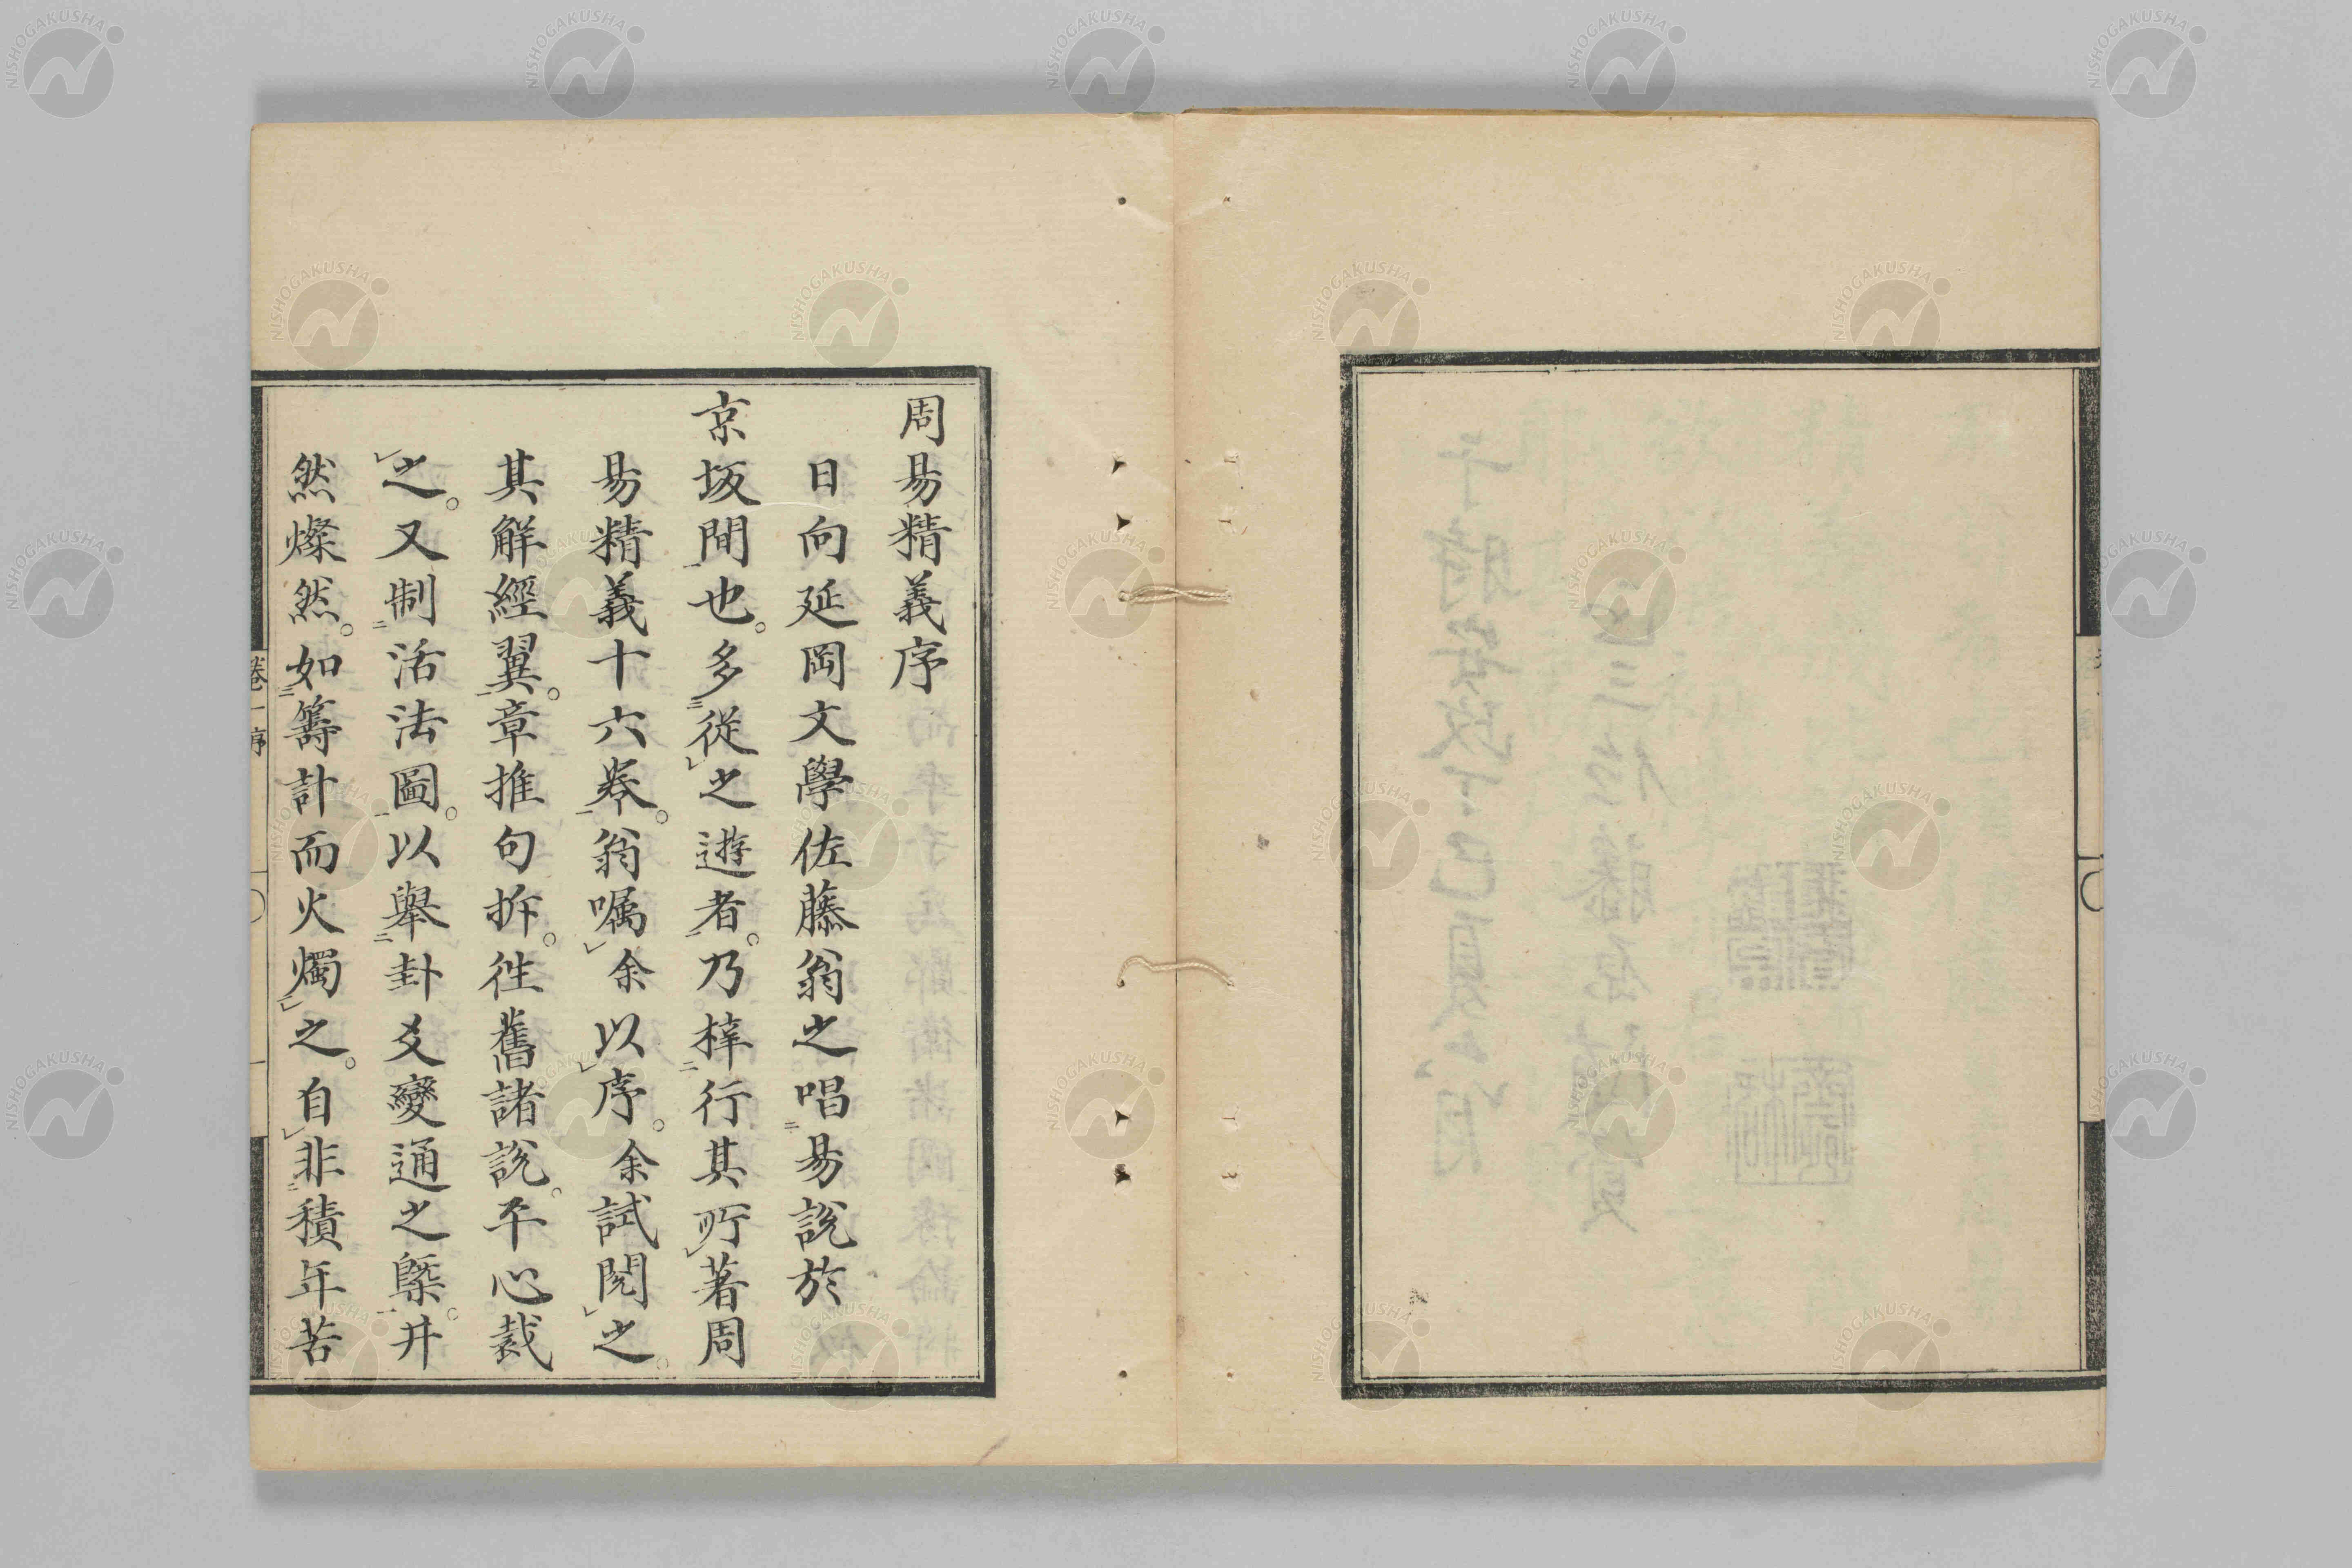 周易精義序
日向延岡文學佐藤翁之唱易說於
京坂間也。多從之遊者。乃梓行其所著周
易精義十六卷。翁囑余以序。余試閱之。
其解經翼。章推句拆。徃舊諸說。平心裁
之。又制活法圖。以舉卦爻變通之槩。井
然燦然。如籌計而火燭之。自非積年苦
卷一序
一
NISHOGAKUSHA